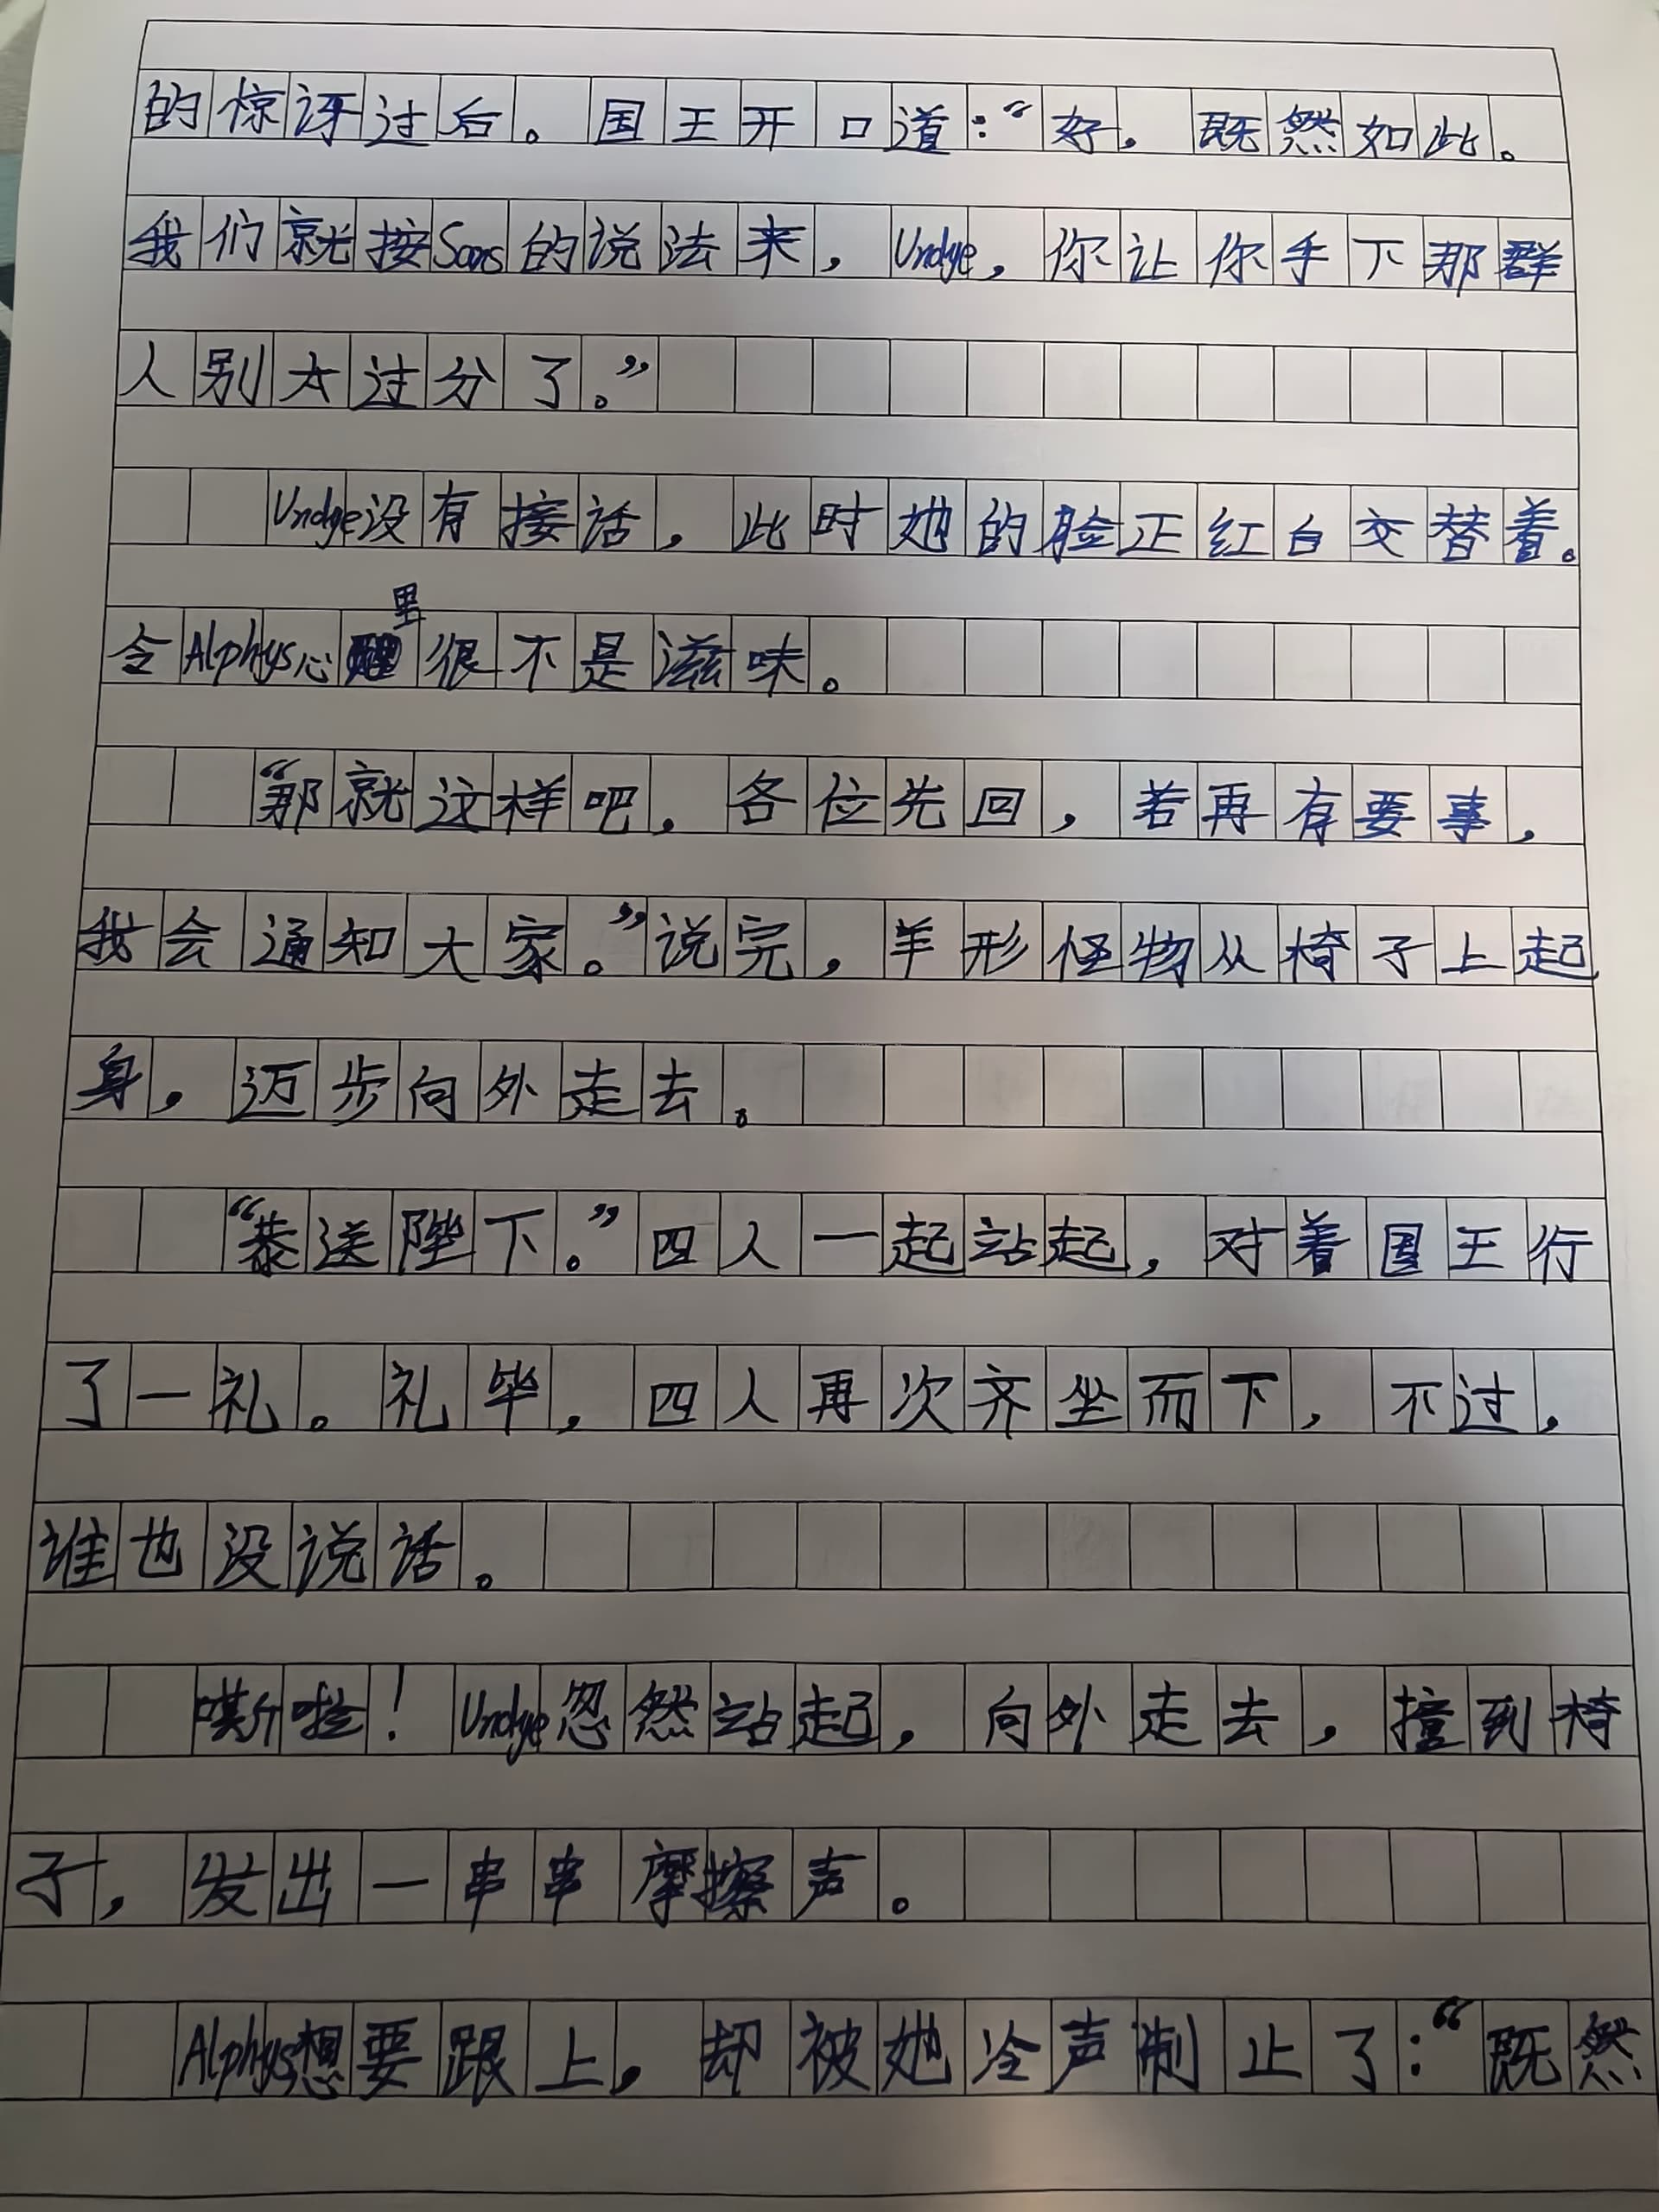 的惊讶过后。国王开口道：“好。既然如此。
我们就按Sans的说法来，Undye，你让你手下那群
人别太过分了。”
Undye没有接话，此时她的脸正红白交替着。
令Alphys心里很不是滋味。
“那就这样吧，各位先回，若再有要事，
我会通知大家。”说完，羊形怪物从椅子上起
身，迈步向外走去。
“恭送陛下。”四人一起站起，对着国王行
了一礼。礼毕，四人再次齐坐而下，不过，
谁也没说话。
嘶啦！Undye忽然站起，向外走去，撞到椅
子，发出一串串摩擦声。
Alphys想要跟上，却被她冷声制止了：“既然